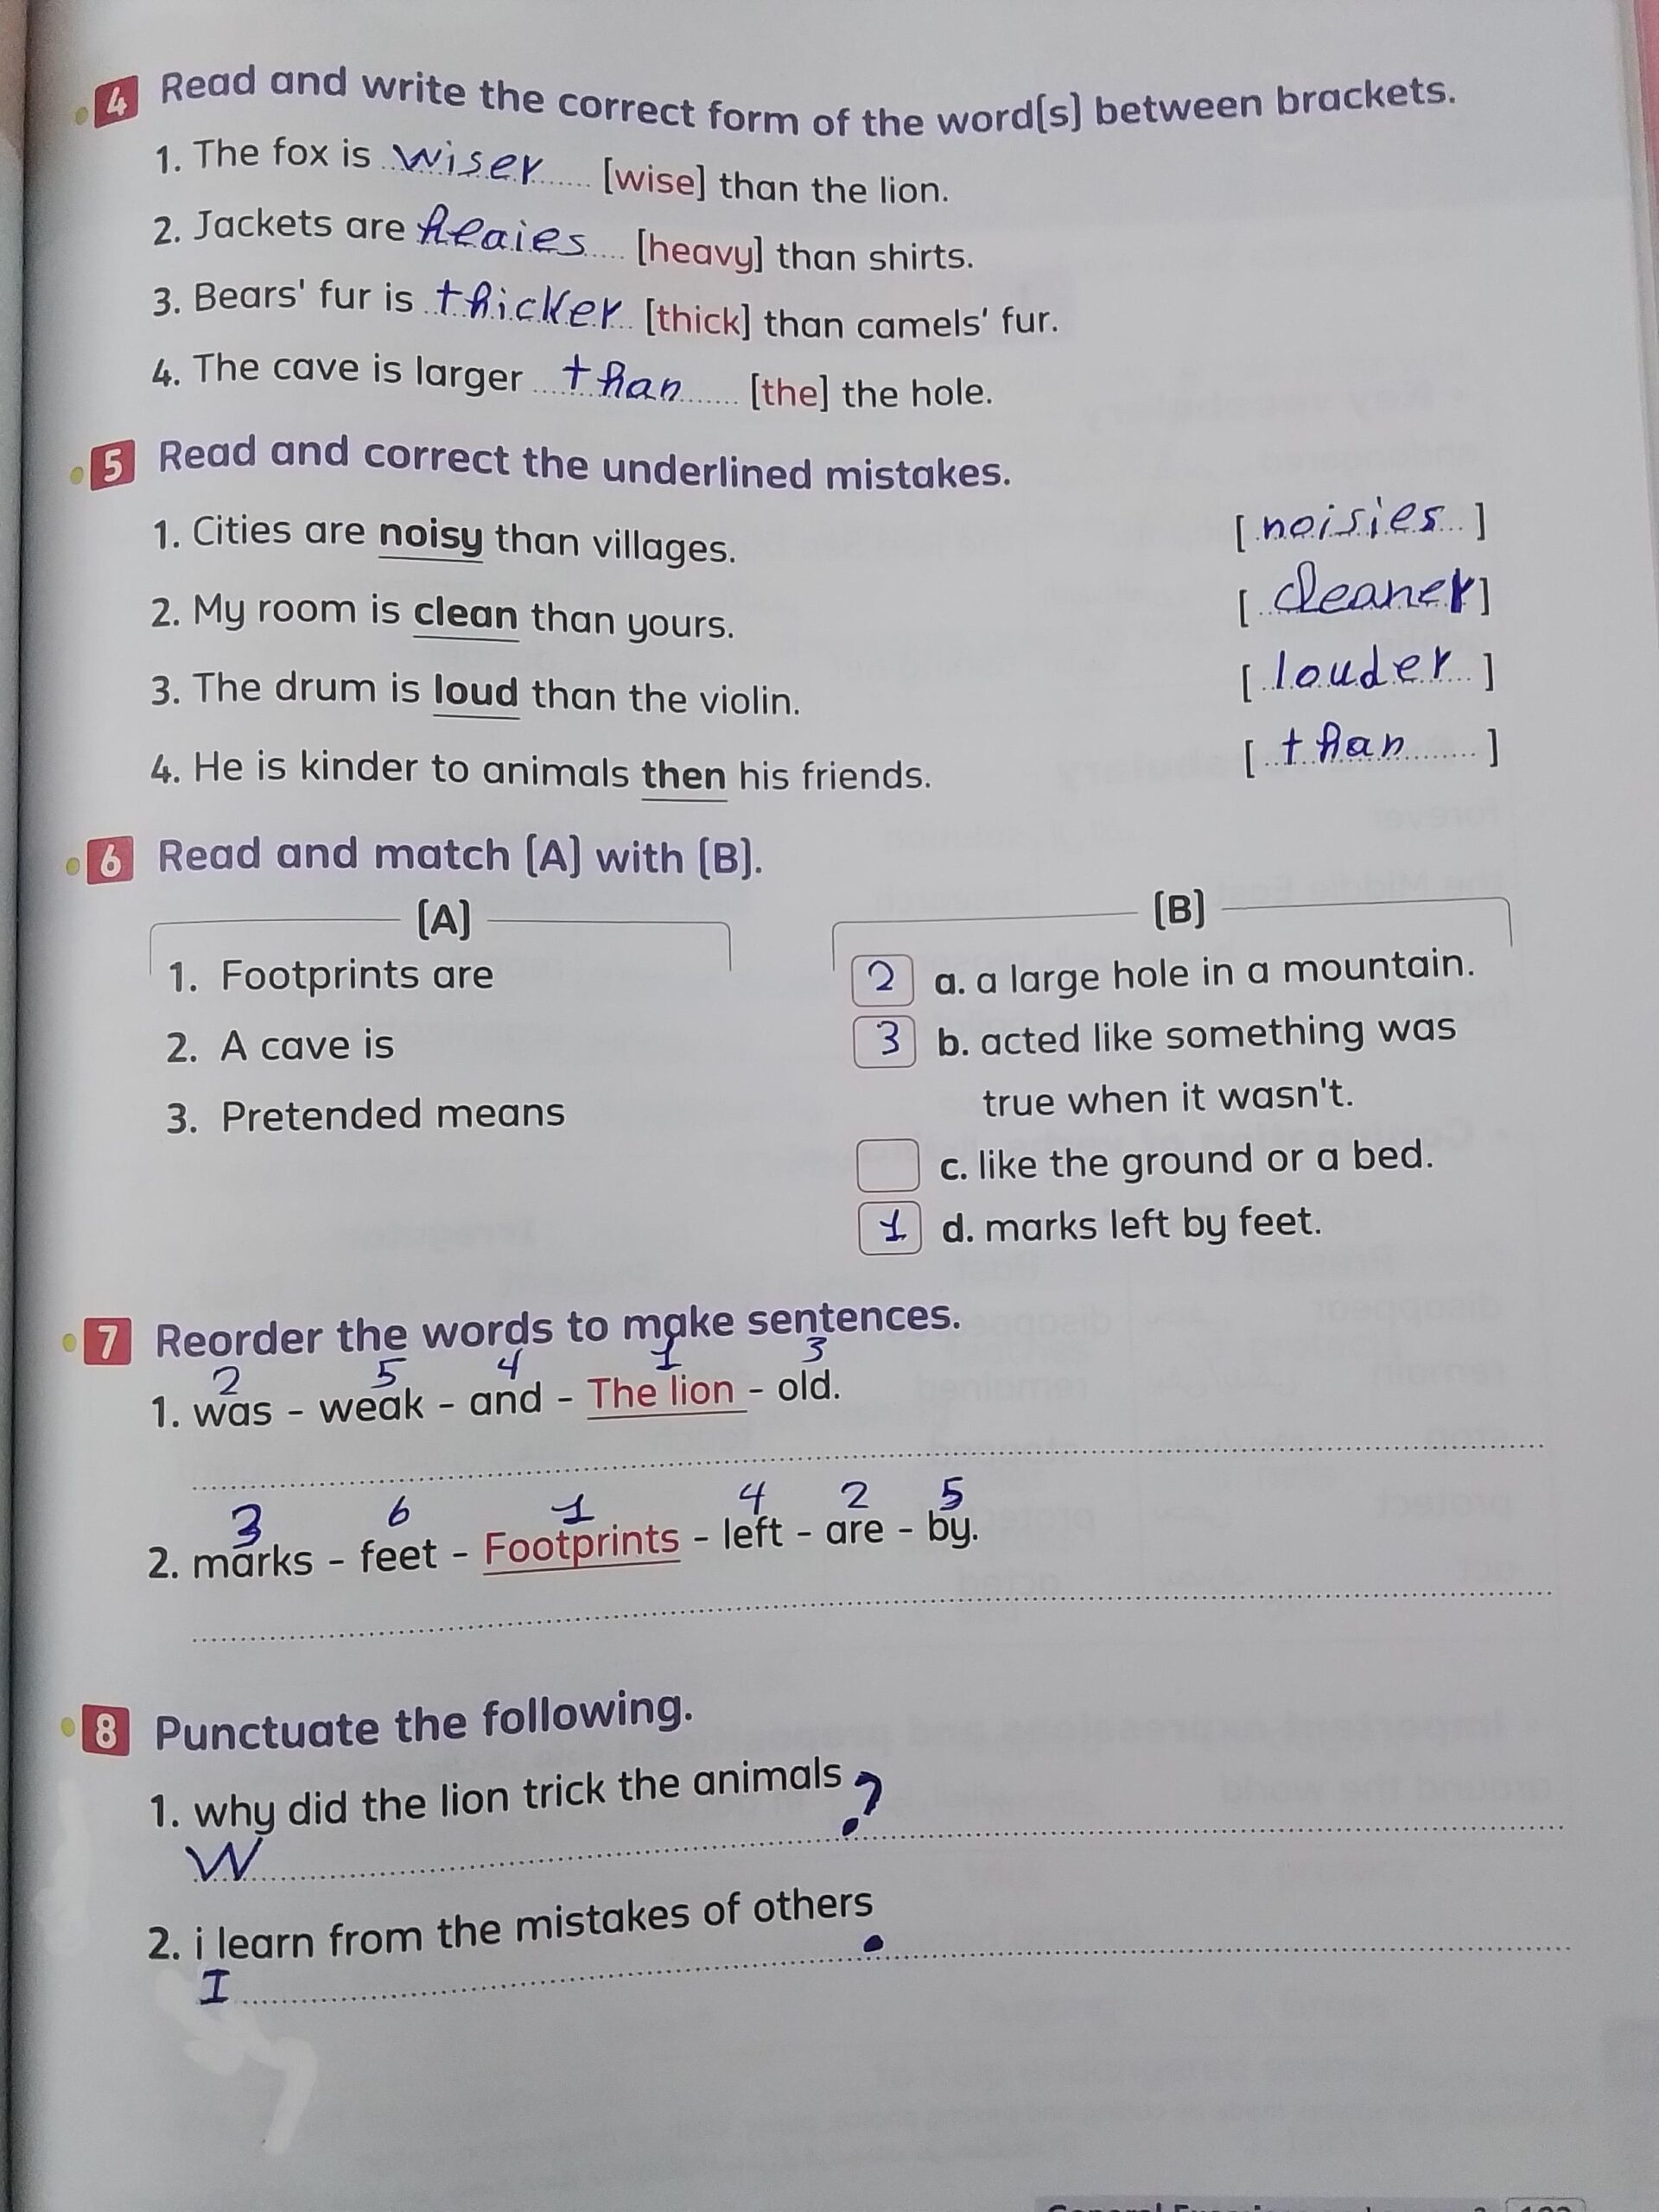 4 Read and write the correct form of the word(s) between brackets.
1. The fox is wiser [wise] than the lion.
2. Jackets are heaies [heavy] than shirts.
3. Bears' fur is thicker [thick] than camels' fur.
4. The cave is larger than [the] the hole.
5 Read and correct the underlined mistakes.
1. Cities are noisy than villages. [noisies]
2. My room is clean than yours. [cleaner]
3. The drum is loud than the violin. [louder]
4. He is kinder to animals then his friends. [than]
6 Read and match (A) with (B).
(A) (B)
1. Footprints are
2. A cave is
3. Pretended means
2 a. a large hole in a mountain.
3 b. acted like something was
true when it wasn't.
c. like the ground or a bed.
1 d. marks left by feet.
7 Reorder the words to make sentences.
2 5 4 1 3
1. was - weak - and - The lion - old.
3 6 1 4 2 5
2. marks - feet - Footprints - left - are - by.
8 Punctuate the following.
1. why did the lion trick the animals ?
W
2. i learn from the mistakes of others .
I